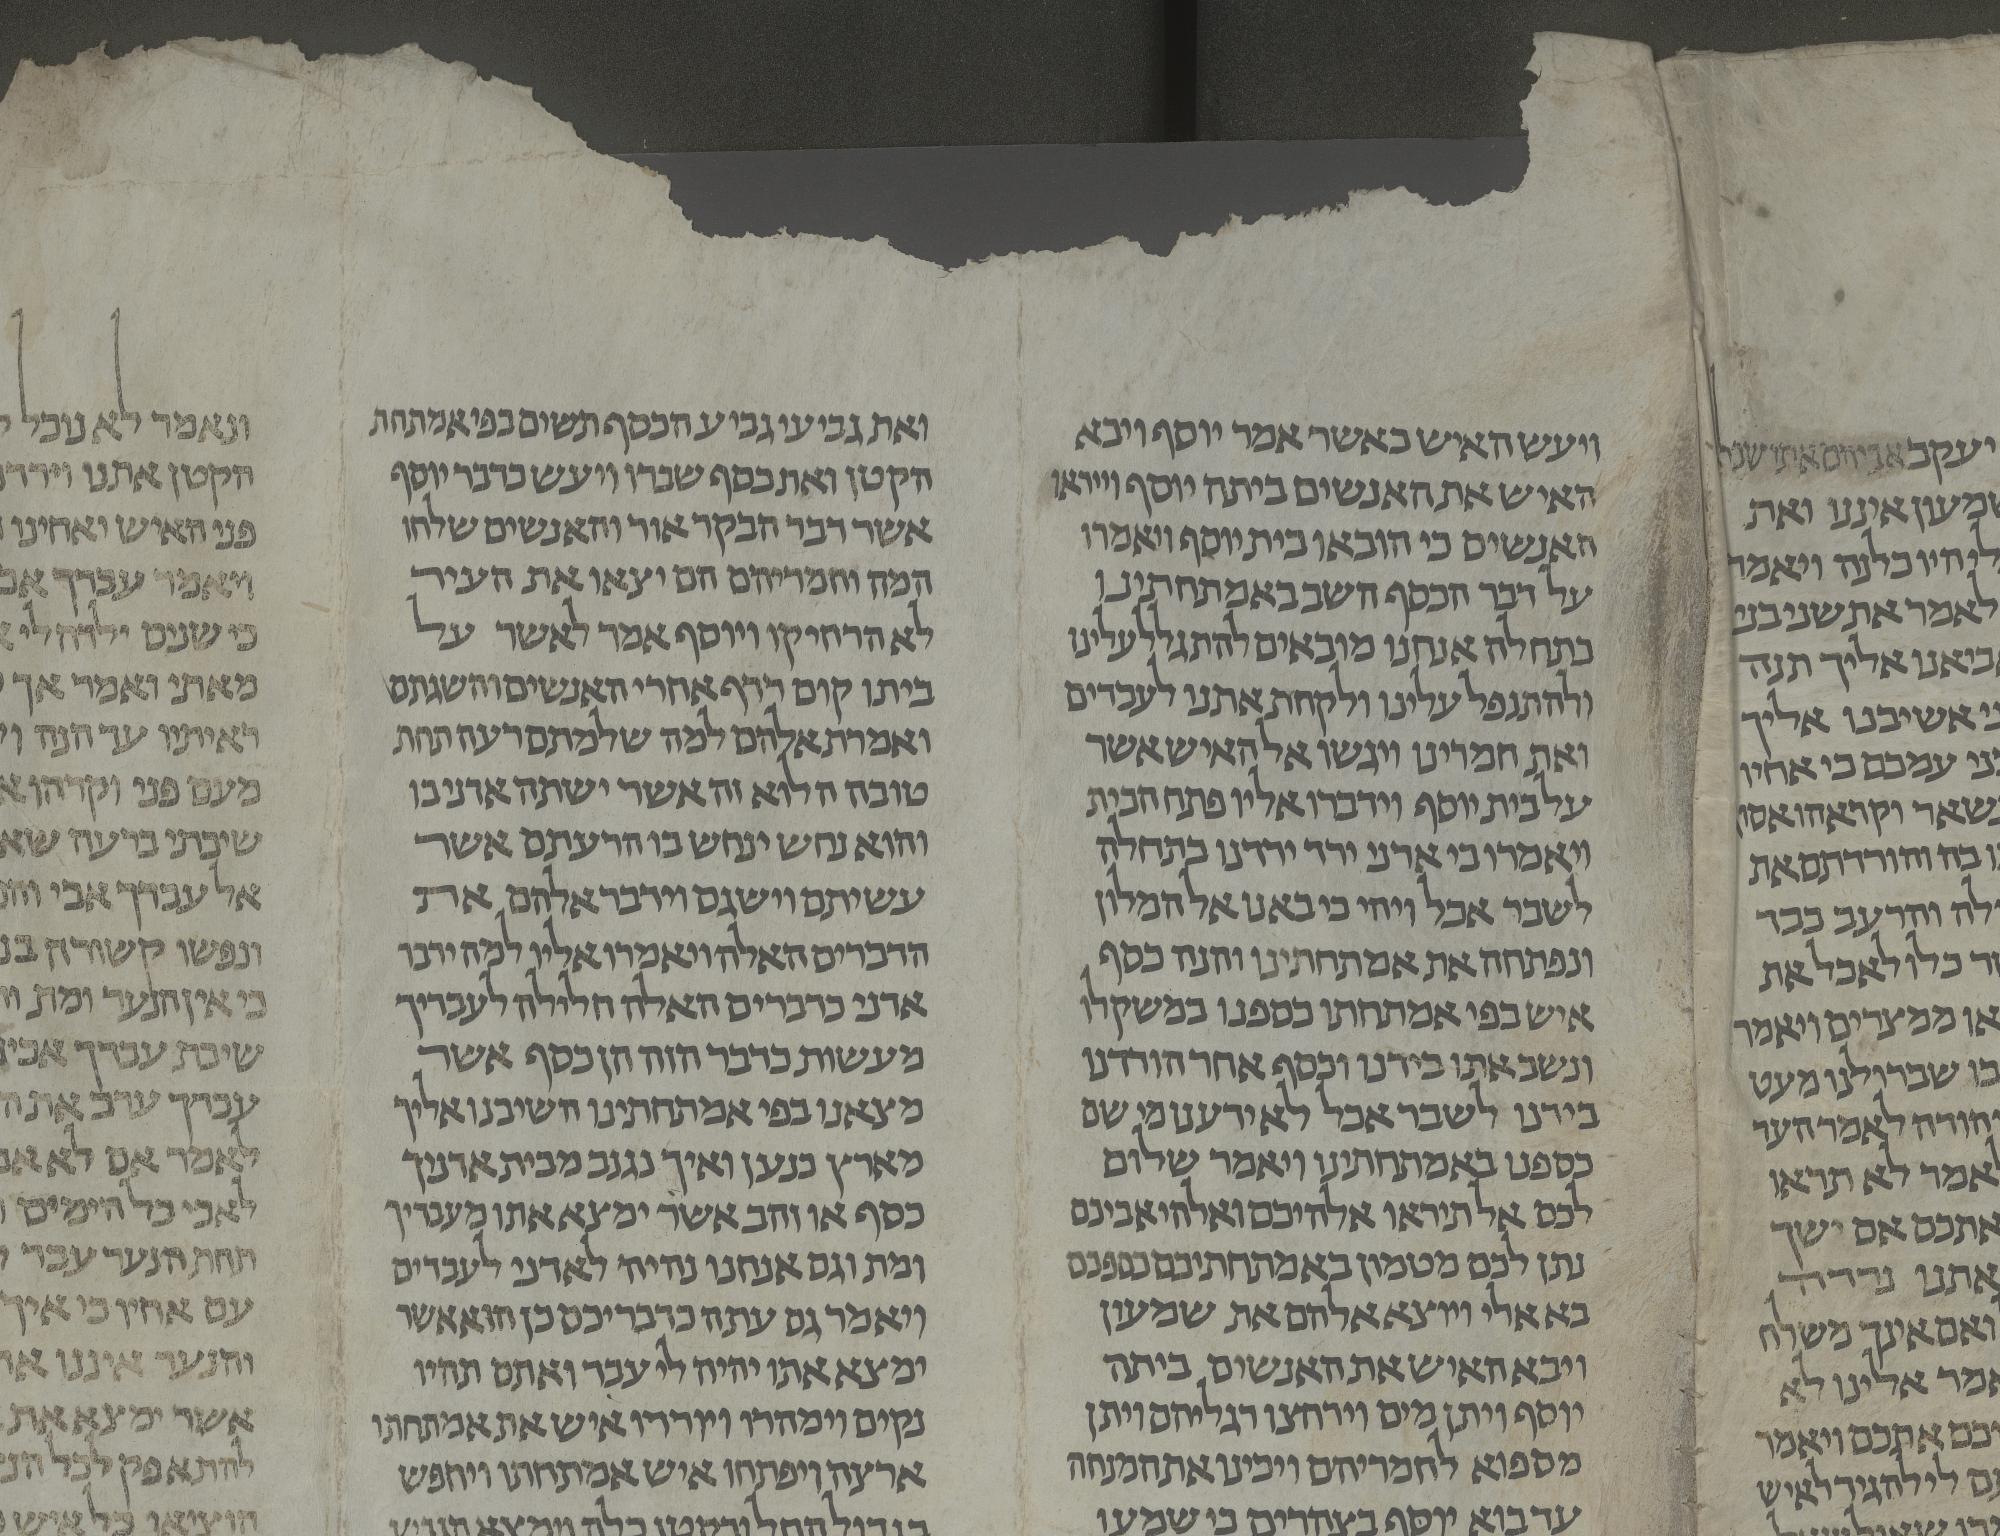 יעקב
שמעון איננו ואת
היו כלנה ויאמר
לאמר את שני בני
אביאנו אליך תנה
אשיבנו אליך
בני עמכם כי אחיו
נשאר וקראהו אסון
בה והורדתם את
והרעב כבד
כלו לאכל את
ממצרים ויאמר
שברו לנו מעט
יהודה לאמר העד
לאמר לא תראו
אתכם אם ישך
אתנו נרדה
ואם אינך משלח
אלינו לא
אתכם ויאמר
לי להגיד לאיש
ויעש האיש כאשר אמר יוסף ויבא
האיש את האנשים ביתה יוסף וייראו
האנשים כי הובאו בית יוסף ויאמרו
על דבר הכסף השב באמתחתינו
בתחלה אנחנו מובאים להתגלל עלינו
ולהתנפל עלינו ולקחת אתנו לעבדים
ואת חמרינו ויגשו אל האיש אשר
על בית יוסף וידברו אליו פתח הבית
ויאמרו בי אדני ירד ירדנו בתחלה
לשבר אכל ויהי כי באנו אל המלון
ונפתחה את אמתחתינו והנה כסף
איש בפי אמתחתו כספנו במשקלו
ונשב אתו בידנו וכסף אחר הורדנו
בידנו לשבר אכל לא ידענו מי שם
כספנו באמתחתינו ויאמר שלום
לכם אל תיראו אלהיכם ואלהי אביכם
נתן לכם מטמון באמתחתיכם כספכם
בא אלי ויוצא אלהם את שמעון
ויבא האיש את האנשים ביתה
יוסף ויתן מים וירחצו רגליהם ויתן
מספוא לחמריהם ויכינו את המנחה
עד בוא יוסף בצהרים כי שמעו
ואת גביעי גביע הכסף תשים בפי אמתחת
הקטן ואת כסף שברו ויעש כדבר יוסף
אשר דבר הבקר אור והאנשים שלחו
המה וחמריהם הם יצאו את העיר
לא הרחיקו ויוסף אמר לאשר על
ביתו קום רדף אחרי האנשים והשגתם
ואמרת אלהם למה שלמתם רעה תחת
טובה הלוא זה אשר ישתה אדני בו
והוא נחש ינחש בו הרעתם אשר
עשיתם וישגם וידבר אלהם את
הדברים האלה ויאמרו אליו למה ידבר
אדני כדברים האלה חלילה לעבדיך
מעשות כדבר הזה הן כסף אשר
מצאנו בפי אמתחתינו השיבנו אליך
מארץ כנען ואיך נגנב מבית אדניך
כסף או זהב אשר ימצא אתו מעבדיך
ומת וגם אנחנו נהיה לאדני לעבדים
ויאמר גם עתה כדבריכם כן הוא אשר
ימצא אתו יהיה לי עבד ואתם תהיו
נקים וימהרו ויורדו איש את אמתחתו
ארצה ויפתחו איש אמתחתו ויחפש
בגדול החל ובקטן כלה וימצא הגביע
ונאמר לא נוכל
הקטן אתנו וירדנו
פני האיש ואחינו
ויאמר עבדך אבי
כי שנים ילדה לי
מאתי ואמר אך
ראיתיו עד הנה
מעם פני וקרהו
שיבתי ברעה
אל עבדך אבי
ונפשו קשורה
כי אין הנער ומת
שיבת עבדך אבינו
עבדך ערב את
לאמר אם לא
לאבי כל הימים
תחת הנער עבד
עם אחיו כי איך
והנער איננו
אשר ימצא את
להתאפק לכל
הוציאו כל איש